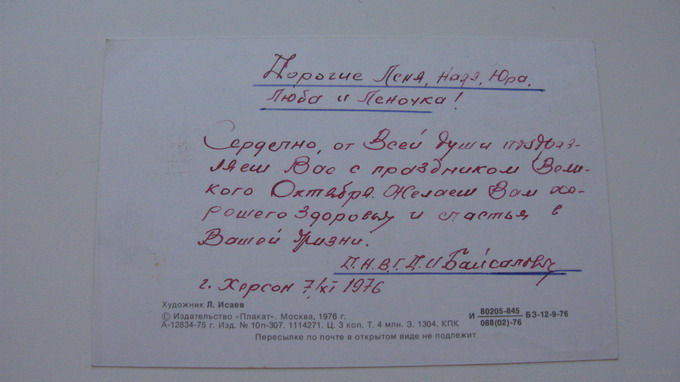 Дорогие Леня, Надя, Юра,
Люба и Леночка!
Сердечно, от Всей души поздрав-
ляем Вас с праздником Вели-
кого Октября. Желаем Вам хо-
рошего здоровья и счастья в
Вашей жизни.
П.Н.В.Г.Д.И
г. Херсон 7/XI 1976
Художник Л. Исаев
© Издательство «Плакат». Москва, 1976 г.
А-12834-75 г. Изд. № 10п-307. 1114271. Ц. 3 коп. Т. 4 млн. З. 1304. КПК
И 80205-845 БЗ-12-9-76
088(02)-76
Пересылке по почте в открытом виде не подлежит